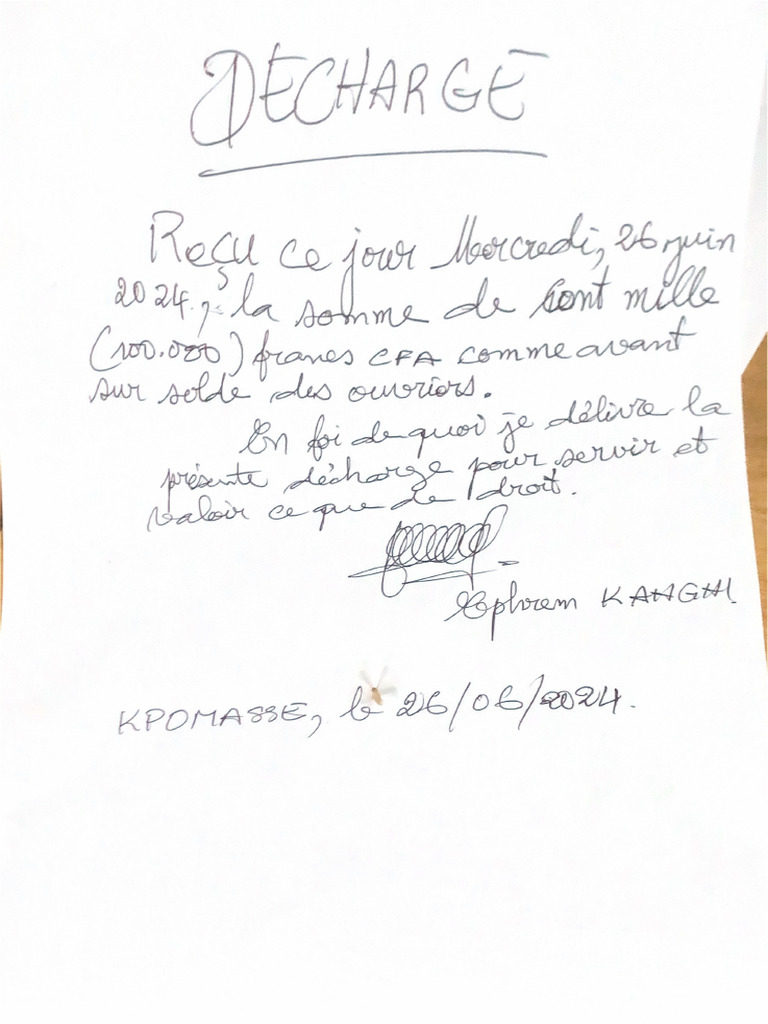 DECHARGE
Reçu ce jour Mercredi, 26 juin
2024, la somme de cent mille
(100.000) francs CFA comme avant
sur solde des ouvriers.
En foi de quoi je délivre la
présente décharge pour servir et
valoir ce que de droit.
Ephrem
KPOMASSE, le 26/06/2024.